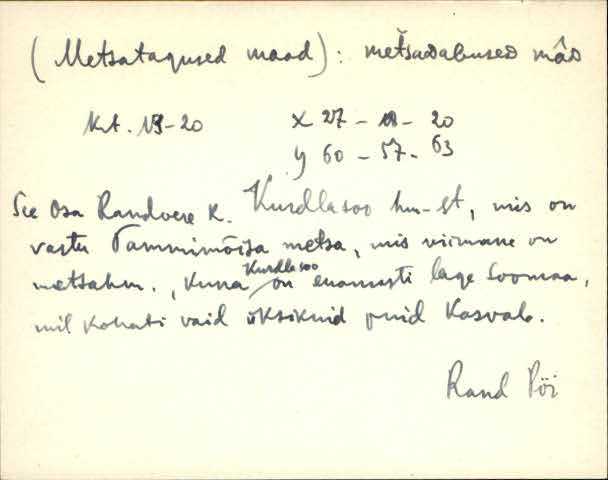 (Metsatagused maad): metsadabused mâd
Krt. 19-20 X 27 - 18 - 20
y 60 - 57 - 63
See osa Randvere k. Kurdlasoo hm-st, mis on
vastu Tammimõisa metsa, mis viimane on
metsahm., kuna Kurdlasoo on enamasti lage soomaa,
mil kohati vaid üksikuid puid kasvab.
Rand Pöi